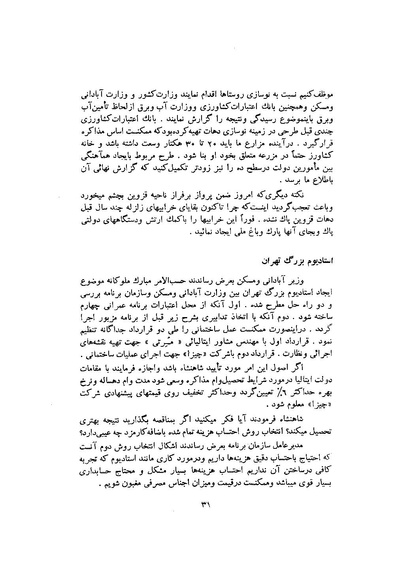 موظف‌کنیم نسبت به نوسازی روستاها اقدام نمایند وزارت‌کشور و وزارت آبادانی
ومسکن وهمچنین بانک اعتبارات‌کشاورزی ووزارت آب وبرق ازلحاظ تأمین‌آب
وبرق باین‌موضوع رسیدگی ونتیجه را گزارش نمایند . بانک اعتبارات‌کشاورزی
چندی قبل طرحی در زمینه نوسازی دهات تهیه‌کرده‌بودکه ممکنست اساس مذاکره
قرارگیرد . درآینده مزارع ما باید ۲۰ تا ۳۰ هکتار وسعت داشته باشد و خانه
کشاورز حتماً در مزرعه متعلق بخود او بنا شود . طرح مربوط بایجاد هم‌آهنگی
بین مأمورین دولت درسطح ده را نیز زودتر تکمیل‌کنید که گزارش نهائی آن
باطلاع ما برسد .
نکته دیگری‌که امروز ضمن پرواز برفراز ناحیه قزوین بچشم میخورد
وباعث تعجب‌گردید اینست‌که چرا تاکنون بقایای خرابیهای زلزله چند سال قبل
دهات قزوین پاک نشده . فوراً این خرابیها را باکمک ارتش ودستگاههای دولتی
پاک وبجای آنها پارک وباغ ملی ایجاد نمائید .
استادیوم بزرگ تهران
وزیر آبادانی ومسکن بعرض رساندند حسب‌الامر مبارک ملوکانه موضوع
ایجاد استادیوم بزرگ تهران بین وزارت آبادانی ومسکن وسازمان برنامه بررسی
و دو راه حل مطرح شده . اول آنکه از محل اعتبارات برنامه عمرانی چهارم
ساخته شود . دوم آنکه با اتخاذ تدابیری بشرح زیر قبل از برنامه مزبور اجرا
گردد . دراینصورت ممکنست عمل ساختمانی را طی دو قرارداد جداگانه تنظیم
نمود . قرارداد اول با مهندس مشاور ایتالیائی جهت تهیه نقشه‌های
اجرائی ونظارت . قرارداد دوم باشرکت «چیزا» جهت اجرای عملیات ساختمانی .
اگر اصول این امر مورد تأیید شاهنشاه باشد واجازه فرمایند با مقامات
دولت ایتالیا درمورد شرایط تحصیل‌وام مذاکره وسعی شود مدت وام ده‌ساله ونرخ
بهره حداکثر ۶٪ تعیین‌گردد وحداکثر تخفیف روی قیمتهای پیشنهادی شرکت
«چیزا» معلوم شود .
شاهنشاه فرمودند آیا فکر میکنید اگر بمناقصه بگذارید نتیجه بهتری
تحصیل میکند؟ انتخاب روش احتساب هزینه تمام شده باضافه‌کارمزد چه عیبی‌دارد؟
مدیرعامل سازمان برنامه بعرض رساندند اشکال انتخاب روش دوم آنست
که احتیاج باحتساب دقیق هزینه‌ها داریم ودرمورد کاری مانند استادیوم که تجربه
کافی درساختن آن نداریم احتساب هزینه‌ها بسیار مشکل و محتاج حسابداری
بسیار قوی میباشد وممکنست درقیمت ومیزان اجناس مصرفی مغبون شویم .
۳۱